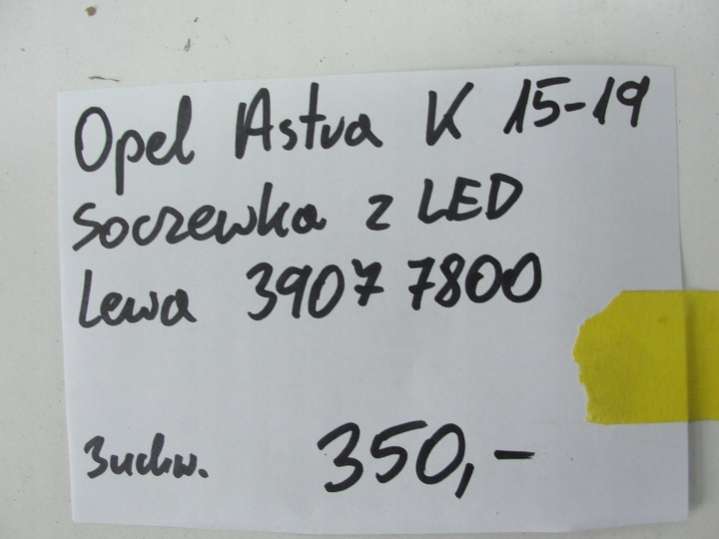 Opel Astra K 15-19
Soczewka z LED
Lewa 39077800
3uchw. 350,-